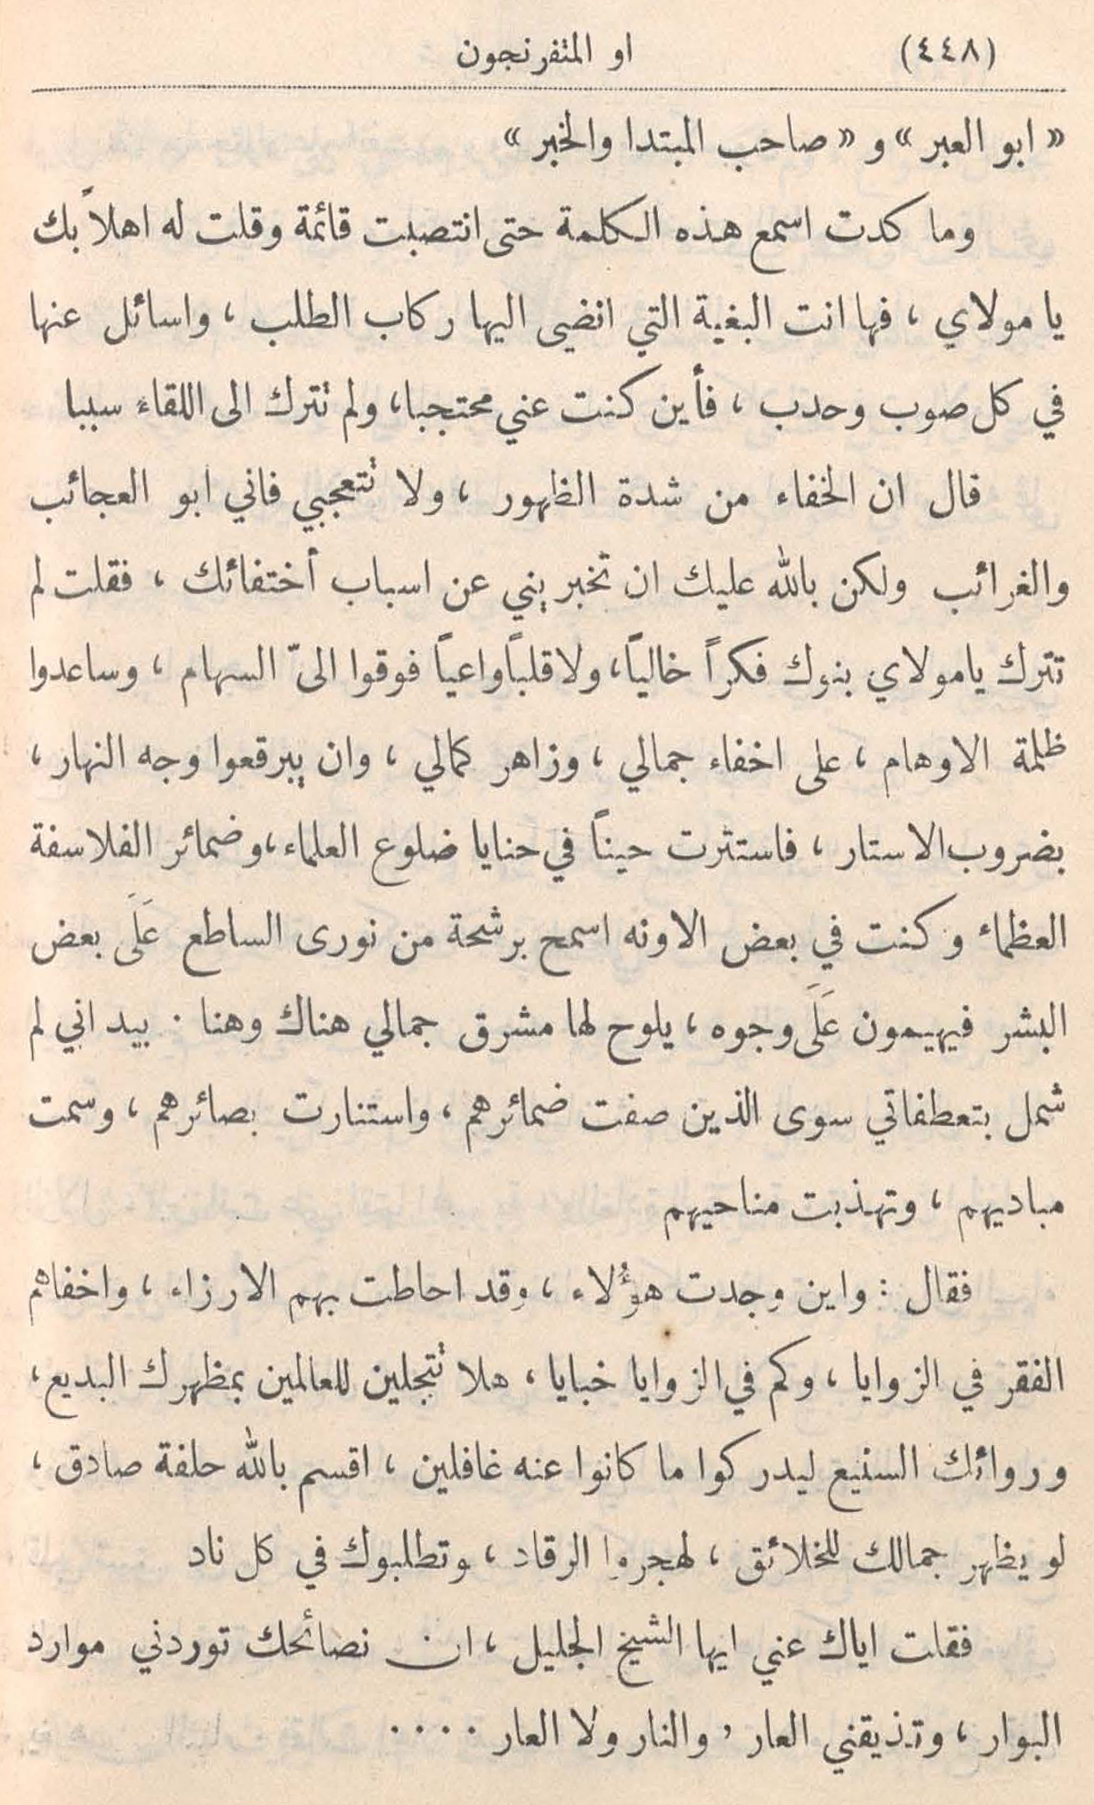 (٤٤٨) او المتفرنجون
« ابو العبر » و « صاحب المبتدا والخبر »
وما كدت اسمع هذه الكلمة حتى انتصبت قائمة وقلت له اهلاً بك
يا مولاي ، فها انت البغية التي انضي اليها ركاب الطلب ، واسائل عنها
في كل صوب وحدب ، فأين كنت عني محتجبا، ولم تترك الى اللقاء سببا
قال ان الخفاء من شدة الظهور ، ولا تتعجبي فاني ابو العجائب
والغرائب ولكن بالله عليك ان تخبريني عن اسباب أختفائك ، فقلت لم
تترك يا مولاي بنوك فكراً خالياً، ولا قلباً واعياً فوقوا اليّ السهام ، وساعدوا
ظلمة الاوهام ، على اخفاء جمالي ، وزاهر كمالي ، وان يبرقعوا وجه النهار ،
بضروب الاستار ، فاستترت حيناً في حنايا ضلوع العلماء، وضمائر الفلاسفة
العظماء وكنت في بعض الاونه اسمح برشحة من نورى الساطع عَلَى بعض
البشر فيهيمون عَلَى وجوه ، يلوح لها مشرق جمالي هناك وهنا . بيد اني لم
شمل بتعطفاتي سوى الذين صفت ضمائرهم ، واستنارت بصائرهم ، وسمت
مباديهم ، وتهذبت مناحيهم
فقال : واين وجدت هؤُلاء ، وقد احاطت بهم الارزاء ، واخفاهم
الفقر في الزوايا ، وكم في الزوايا خبايا ، هلا تتجلين للعالمين بمظهرك البديع ،
وروائك السنيع ليدركوا ما كانوا عنه غافلين ، اقسم بالله حلفة صادق ،
لو يظهر جمالك للخلائق ، لهجروا الرقاد ، وتطلبوك في كل ناد
فقلت اياك عني ايها الشيخ الجليل ، ان نصائحك توردني موارد
البوار ، وتذيقني العار , والنار ولا العار . . . .